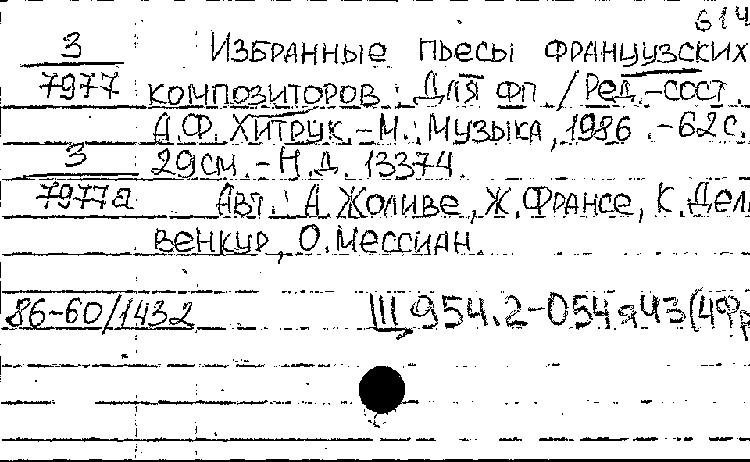 614
3 Избранные пьесы французских
7977 композиторов : Для фп. / Ред.-сост.
А.Ф. Хитрук. - М. : Музыка, 1986. - 62 с.
3 29 см. - Н.д. 13374.
7977а Авт.: А. Жоливе, Ж. Франсе, К. Дел
венкур, О. Мессиан.
86-60/1432 III 954.2-054я43(4Фр